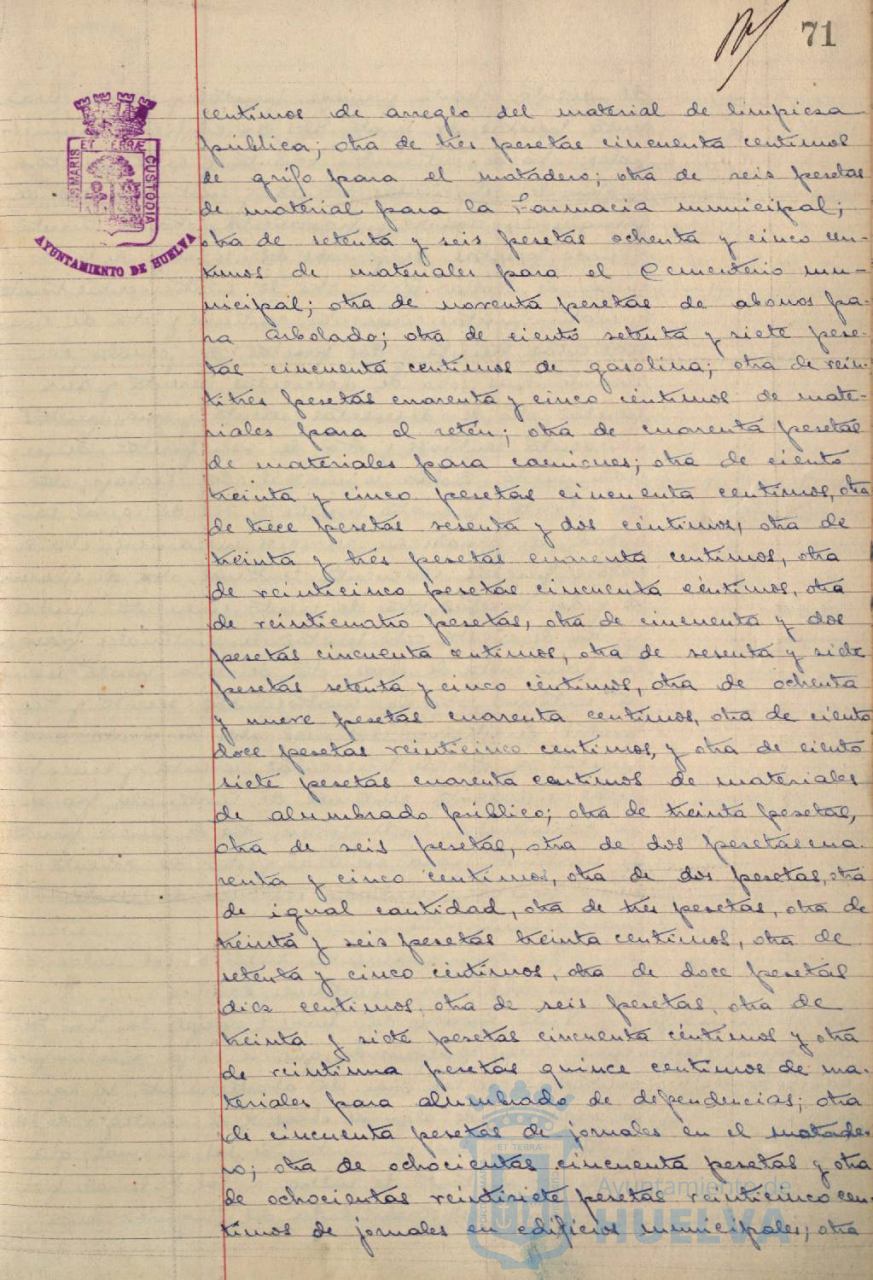 71
PORTUS MARIS ET TERRÆ CUSTODIA
AYUNTAMIENTO DE HUELVA
centimos de arreglo del material de limpiesa
pública; otra de tres pesetas cincuenta centimos
de grifo para el matadero; otra de seis pesetas
de material para la Farmacia municipal;
otra de setenta y seis pesetas ochenta y cinco cen-
timos de materiales para el Cementerio mu-
nicipal; otra de noventa pesetas de abonos pa-
ra arbolado; otra de ciento setenta y siete pese-
tas cincuenta centimos de gasolina; otra de vein-
titres pesetas cuarenta y cinco céntimos de mate-
riales para el retén; otra de cuarenta pesetas
de materiales para camiones; otra de ciento
treinta y cinco pesetas cincuenta centimos, otra
de trece pesetas sesenta y dos céntimos, otra de
treinta y tres pesetas cuarenta centimos, otra
de veinticinco pesetas cincuenta céntimos, otra
de veinticuatro pesetas, otra de cincuenta y dos
pesetas cincuenta centimos, otra de sesenta y siete
pesetas setenta y cinco céntimos, otra de ochenta
y nueve pesetas cuarenta centimos, otra de ciento
doce pesetas veinticinco centimos, y otra de ciento
siete pesetas cuarenta centimos de materiales
de alumbrado público; otra de treinta pesetas,
otra de seis pesetas, otra de dos pesetas cua-
renta y cinco centimos, otra de dos pesetas, otra
de igual cantidad, otra de tres pesetas, otra de
treinta y seis pesetas treinta centimos, otra de
setenta y cinco céntimos, otra de doce pesetas
diez centimos, otra de seis pesetas, otra de
treinta y siete pesetas cincuenta céntimos y otra
de veintiuna pesetas quince centimos de ma-
teriales para alumbrado de dependencias; otra
de cincuenta pesetas de jornales en el matade-
ro; otra de ochocientas cincuenta pesetas y otra
de ochocientas veintisiete pesetas veinticinco cen-
timos de jornales en edificios municipales; otra
Ayuntamiento de
HUELVA